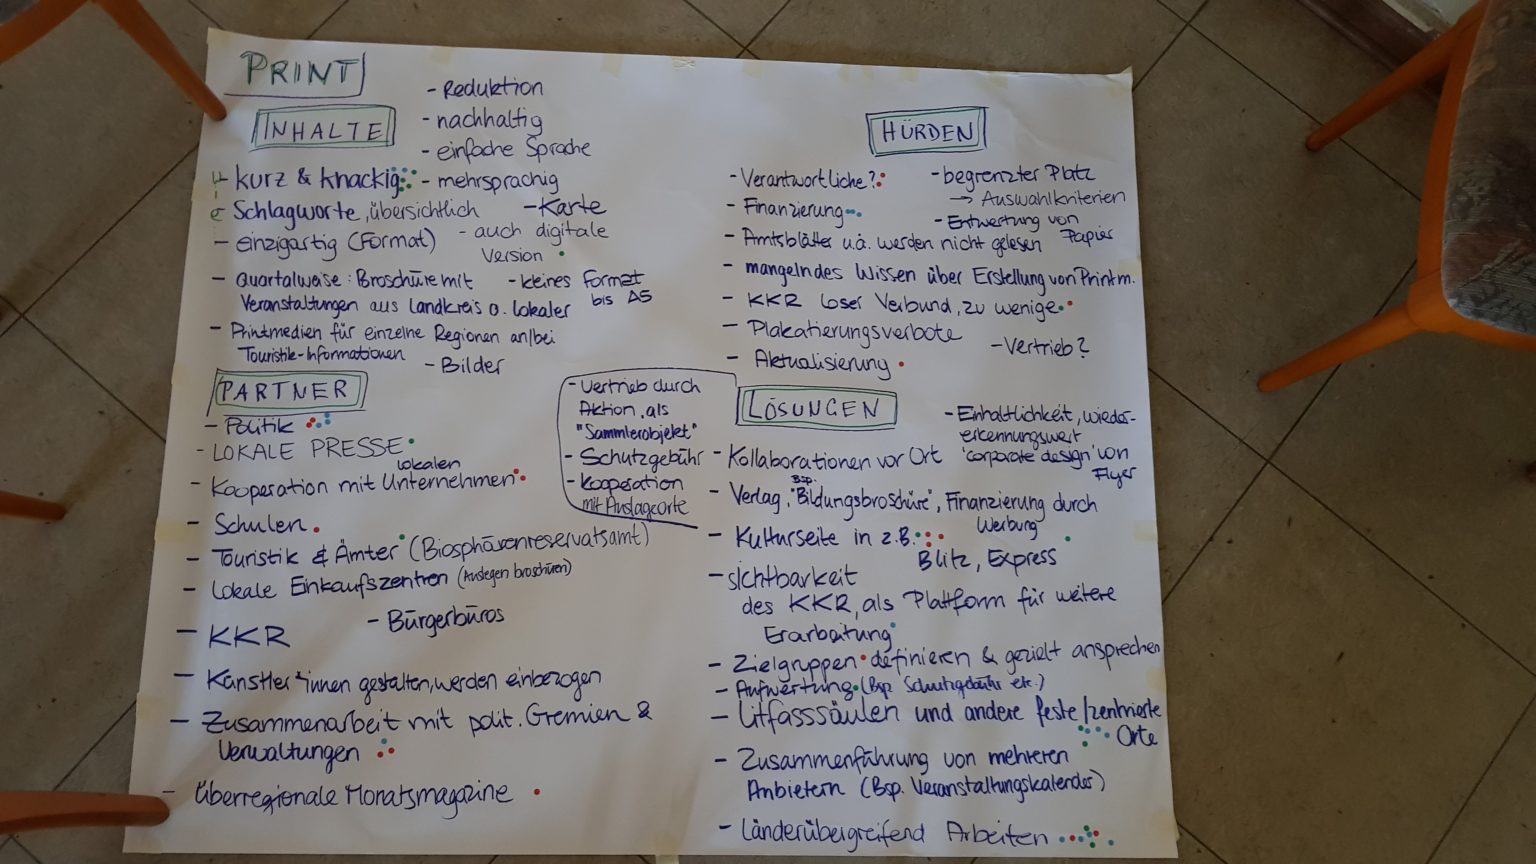 PRINT
INHALTE
- Reduktion
- nachhaltig
- einfache Sprache
- mehrsprachig
kurz & knackig
Schlagworte, übersichtlich
- Karte
- einzigartig (Format)
- auch digitale
Version
- Quartalweise: Broschüre mit
Veranstaltungen aus Landkreis o. lokaler
- kleines Format
bis A5
- Printmedien für einzelne Regionen an/bei
Touristik-Informationen
- Bilder
HÜRDEN
- Verantwortliche?
- begrenzter Platz
→ Auswahlkriterien
- Finanzierung
- Entwertung von
Papier
- Amtsblätter u.ä. werden nicht gelesen
- mangelndes Wissen über Erstellung von Printm.
- KKR loser Verbund, zu wenige
- Plakatierungsverbote
- Vertrieb?
- Aktualisierung
PARTNER
- Politik
- LOKALE PRESSE
lokalen
- Kooperation mit Unternehmen
- Schulen
- Touristik & Ämter (Biosphärenreservatsamt)
- Lokale Einkaufszentren (Auslegen broschüren)
- Bürgerbüros
- KKR
- Künstler*innen gestalten, werden einbezogen
- Zusammenarbeit mit polit. Gremien &
Verwaltungen
- überregionale Monatsmagazine
- Vertrieb durch
Aktion, als
"Sammlerobjekt"
- Schutzgebühr
- Kooperation
mit Auslageorte
LÖSUNGEN
- Einhaltlichkeit, wieder-
erkennungswert
'corporate design' von
Flyer
- Kollaborationen vor Ort
Bsp.
- Verlag, "Bildungsbroschüre", Finanzierung durch
Werbung
- Kulturseite in z.B.
Blitz, Express
- sichtbarkeit
des KKR, als Plattform für weitere
Erarbeitung
- Zielgruppen definieren & gezielt ansprechen
- Aufwertung (Bsp. Schutzgebühr etc.)
- Litfasssäulen und andere feste/zentrierte
Orte
- Zusammenführung von mehreren
Anbietern (Bsp. Veranstaltungskalender)
- Länderübergreifend Arbeiten